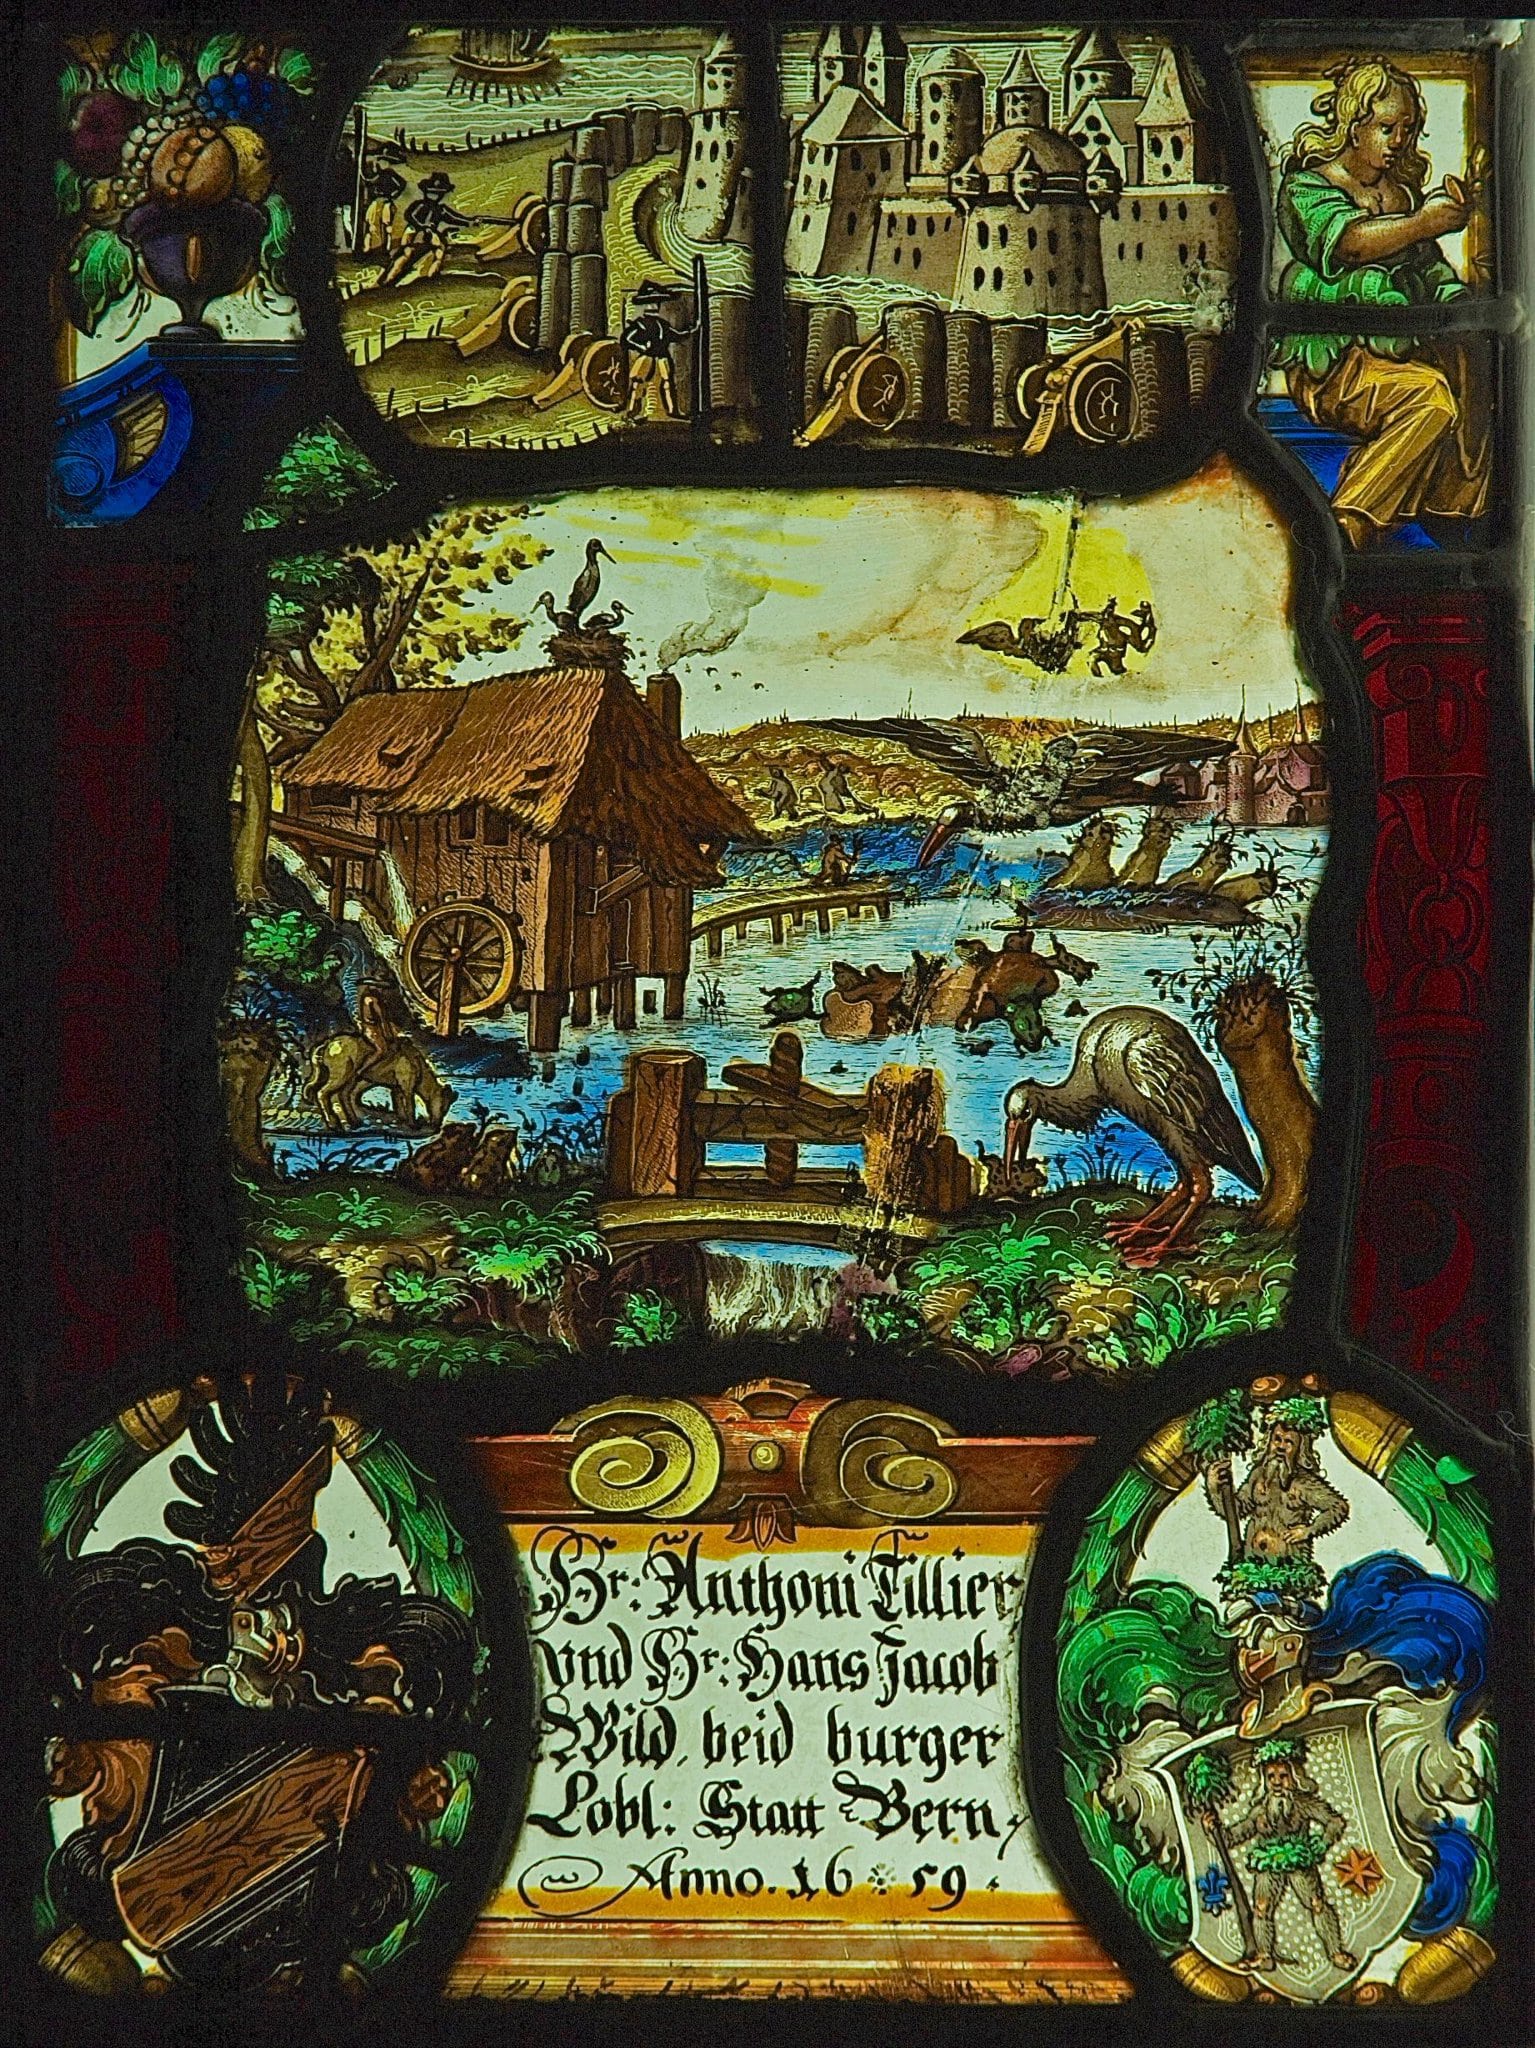 Hr: Anthoni Tillier
vnd Hr: Hans Jacob
Wild, beid burger
Lobl: Statt Bern,
Anno. 16 59.